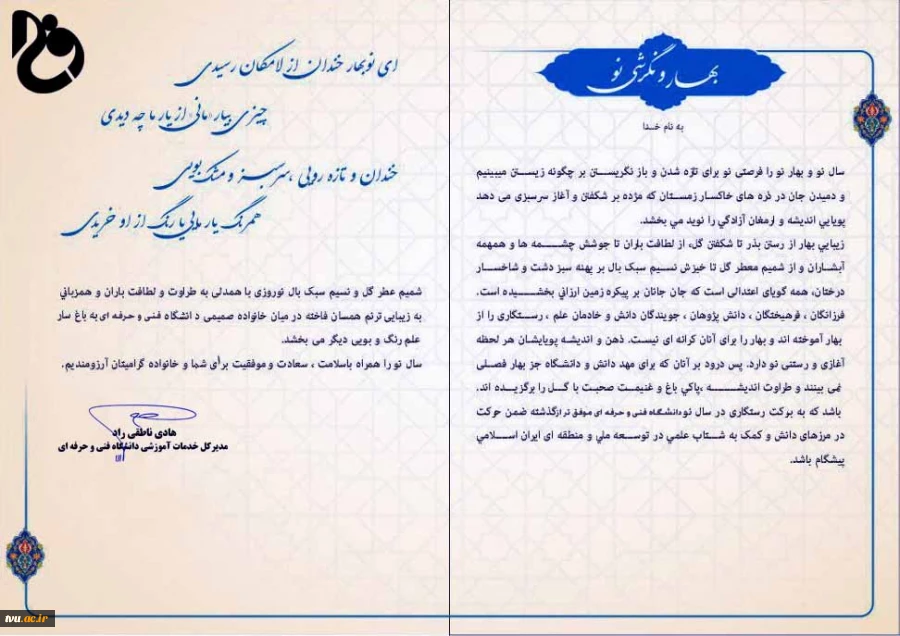 بهار و نگرشی نو
به نام خدا
سال نو و بهار نو را فرصتی نو برای تازه شدن و باز نگریستن بر چگونه زیستن میبینیم
و دمیدن جان در ذره های خاکسار زمستان که مژده بر شکفتن و آغاز سرسبزی می دهد
پویایي اندیشه و ارمغان آزادگي را نوید می بخشد.
زیبایي بهار از رستن بذر تا شکفتن گل، از لطافت باران تا جوشش چشمه ها و همهمه
آبشاران و از شمیم معطر گل تا خیزش نسیم سبک بال بر پهنه سبز دشت و شاخسار
درختان، همه گویای اعتدالی است که جان جانان بر پیکره زمین ارزاني بخشیده است.
فرزانگان ، فرهیختگان ، دانش پژوهان ، جویندگان دانش و خادمان علم ، رستگاری را از
بهار آموخته اند و بهار را برای آنان کرانه ای نیست. ذهن و اندیشه پویایشان هر لحظه
آغازی و رستنی نو دارد. پس درود بر آنان که برای مهد دانش و دانشگاه جز بهار فصلی
نمی بینند و طراوت اندیشه ،پاکي باغ و غنیمت صحبت با گل را برگزیده اند.
باشد که به برکت رستگاری در سال نو دانشگاه فنی و حرفه ای موفق تر ازگذشته ضمن حرکت
در مرزهای دانش و کمک به شتاب علمي در توسعه ملي و منطقه ای ایران اسلامي
پیشگام باشد.
ای نوبهار خندان از لامکان رسیدی
چیزی بیار مانی از یار ما چه دیدی
خندان و تازه رویی ،سرسبز و مشک بویی
همرنگ یار مایی یا رنگ از او خریدی
شمیم عطر گل و نسیم سبک بال نوروزی با همدلی به طراوت و لطافت باران و همزباني
به زیبایی ترنم همسان فاخته در میان خانواده صمیمی دانشگاه فنی و حرفه ای به باغ سار
علم رنگ و بویی دیگر می بخشد.
سال نو را همراه باسلامت ، سعادت و موفقیت برای شما و خانواده گرامیتان آرزومندیم.
هادی ناطقی راد
مدیرکل خدمات آموزشی دانشگاه فنی و حرفه ای
tvu.ac.ir